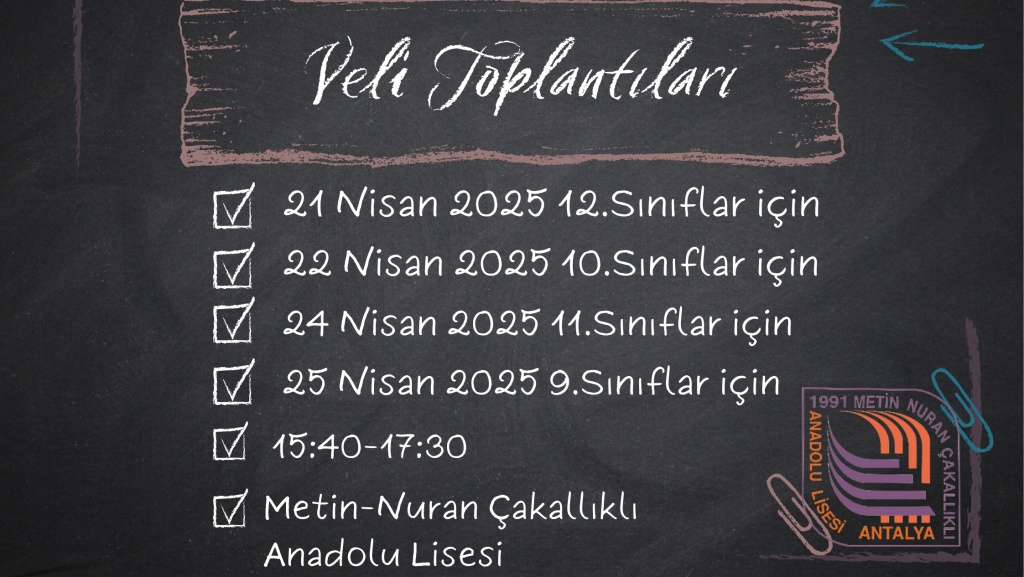 Veli Toplantıları
21 Nisan 2025 12.Sınıflar için
22 Nisan 2025 10.Sınıflar için
24 Nisan 2025 11.Sınıflar için
25 Nisan 2025 9.Sınıflar için
15:40-17:30
Metin-Nuran Çakallıklı
Anadolu Lisesi
1991 METİN NURAN ÇAKALLIKLI
ANADOLU LİSESİ
ANTALYA